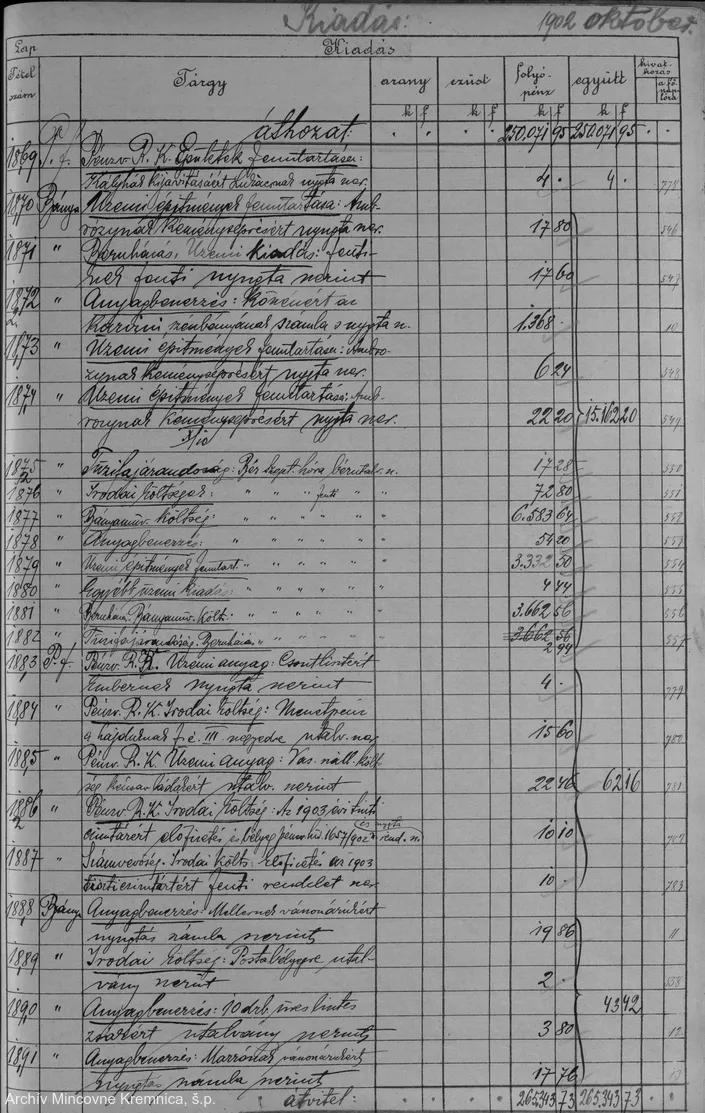 Kiadás: 1902 október.
Lap Kiadás
Tétel szám Tárgy arany ezüst folyó-pénz együtt hivatkozás a főnaplóra
k f k f k f k f
áthozat: 250.071 95 250.071 95
1869 P. f. Pénzv. R. K. Épületek fenntartása:
Kályhák kijavításáért nyugta sz. 4 . 4 . 778
1870 Bánya Üzemi építmények fenntartása: Amb-
rozynak kéményseprésért nyugta sz. 17 80 546
1871 " Beruházás, Üzemi kiadás: fenti-
nek fenti nyugta szerint 17 60 547
1872 " Anyagbeszerzés: Kőszénért a
karvini szénbányának számla s nyugta sz. 1.368 . 10
1873 " Üzemi építmények fenntartása: Ambro-
zynak kéményseprésért nyugta sz. 6 24 548
1874 " Üzemi építmények fenntartása: Amb-
rozynak kéményseprésért nyugta sz. 22 20 15.162 20 549
1875 " Tűzifajárandóság: Bér szept. hóra bérutalv. sz. 17 28 550
1876 " Irodai költségek: " " " fenti " " 72 80 551
1877 " Bányaműv. költség: " " " " " 6.583 64 552
1878 " Anyagbeszerzés: " " " " " 54 20 553
1879 " Üzemi építmények fenntart. " " " " " 3.332 50 554
1880 " Egyébb üzemi kiadás: " " " " " 4 44 555
1881 " Beruház. Bányaműv. költs: " " " " " 3.662 56 556
1882 " Tűzifajárandóság. Beruházás " " " " " 3.662 56
2 94 557
1883 P. f. Pénzv. R. K. Üzemi anyag: Csontlisztért
Embernek nyugta szerint 4 . 779
1884 " Pénzv. R. K. Irodai költség: Menetpénz
a hajduknak f. é. III negyedre utalv. sz. 15 60 780
1885 " Pénzv. R. K. Üzemi anyag: Vas. száll. költ-
ség utalv. szerint 22 46 62 16 781
1886 " Pénzv. R. K. Irodai költség: Az 1903 évi tiszti
címtárért előfizetés és bélyeg 1657/902 rend. sz. és nyugta 10 10 782
1887 " Számvevőség. Irodai költs. Előfizetés az 1903
tiszti címtárért fenti rendelet sz. 10 . 783
1888 Bánya Anyagbeszerzés: vászonárúkért
nyugtás számla szerint 19 86 11
1889 " Irodai költség: Postabélyegre utal-
vány szerint 2 . 558
1890 " Anyagbeszerzés: 10 drb. üres lisztes
zsákért utalvány szerint 3 80 43 42 12
1891 " Anyagbeszerzés: vászonárúkért
nyugtás számla szerint 17 76 13
átvitel: 265.343 73 265.343 73
Archív Mincovne Kremnica, š.p.